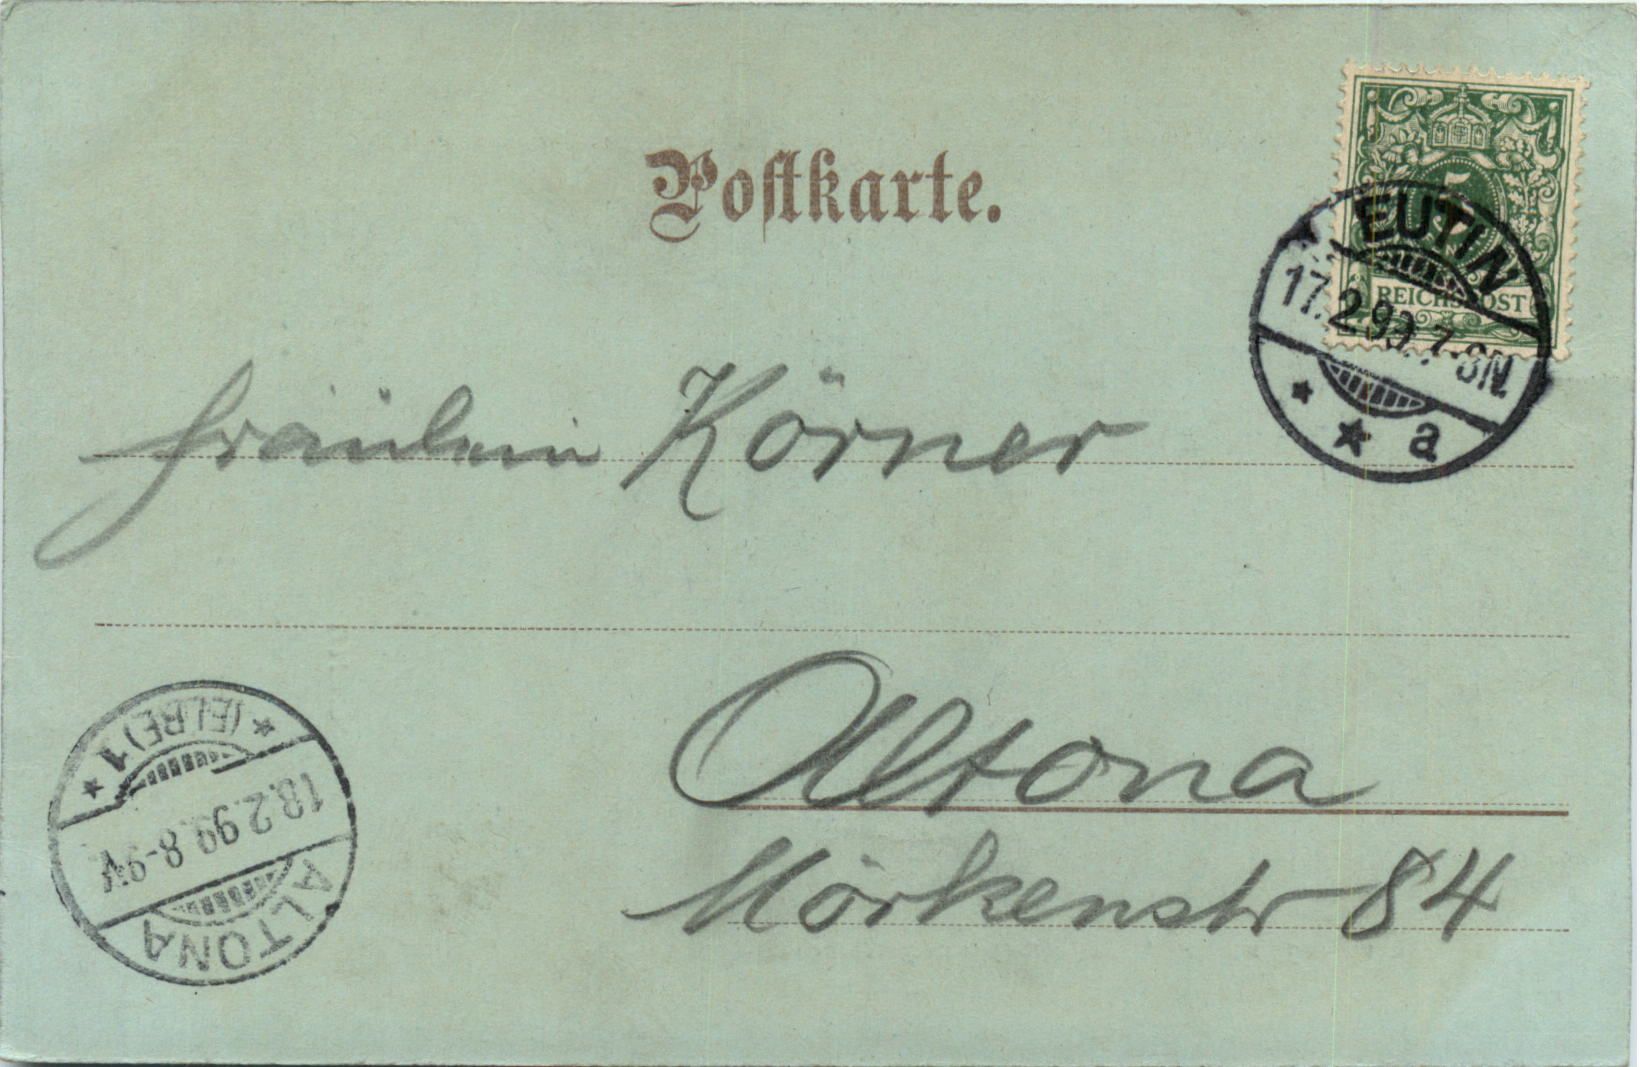 Postkarte.
5
REICHSPOST
EUTIN
17.2.99.7-8N.
a
Fräulein Körner
Altona
Mörkenstr 84
ALTONA
18.2.99.8-9V.
(ELBE)1